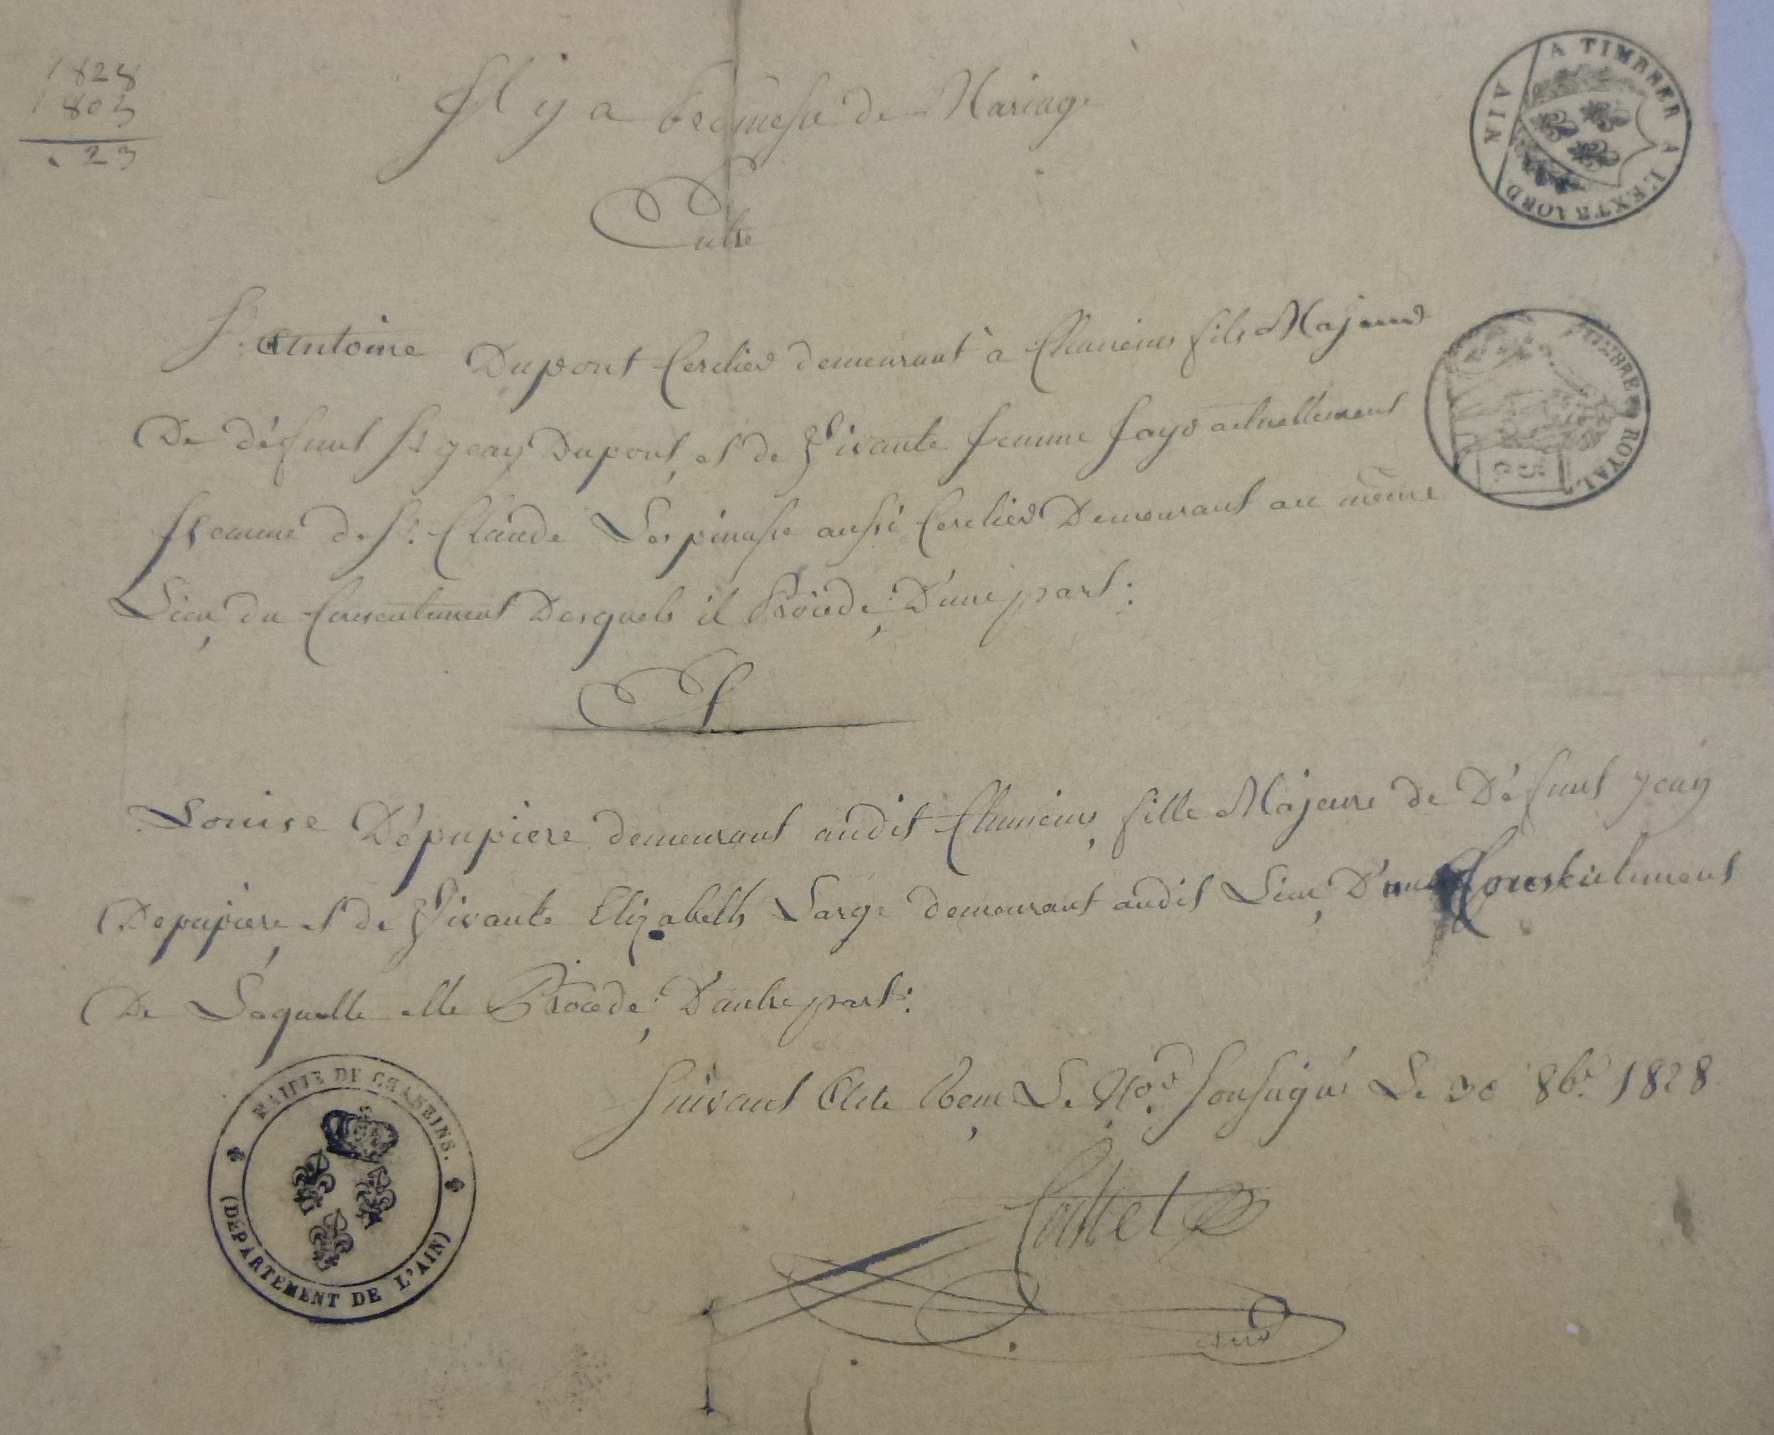 1828
1803
. 23
Il y a promesse de Mariage
Entre
Sr. Antoine Dupont Cerclier demeurant à fils Majeur
De défunt Sr jean Dupont, et de Vivante femme actuellement
femme de Sr. Claude Lespinasse aussi Cerclier Demeurant au même
Lieu, du Consentement Desquels il Procède, D'une part:
Et
Louise Dépupiere demeurant audit fille Majeure de Défunt jean
Depupiere, et de Vivante Elizabeth Large demeurant audit Lieu, Du Consentement
De Laquelle elle Procède, D'autre part:
Suivant Acte Reçu, Le No.re Soussigné Le 30 8bre 1828
A TIMBRER A L'EXTRAORD.
AIN
TIMBRE ROYAL
MAIRIE DE CHANEINS.
(DEPARTEMENT DE L'AIN)